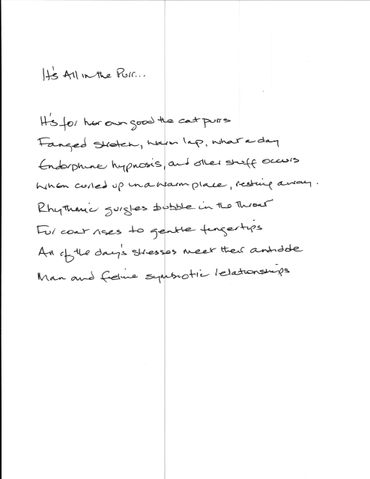 It's All in the Purr...
It's for her own good the cat purrs
Fanged stretch, warm lap, what a day
Endorphine hypnosis, and other stuff occurs
When curled up in a warm place, resting away.
Rhythmic gurgles bubble in the throat
Fur coat rises to gentle fingertips
All of the day's stresses meet their antidote
Man and feline symbiotic relationships